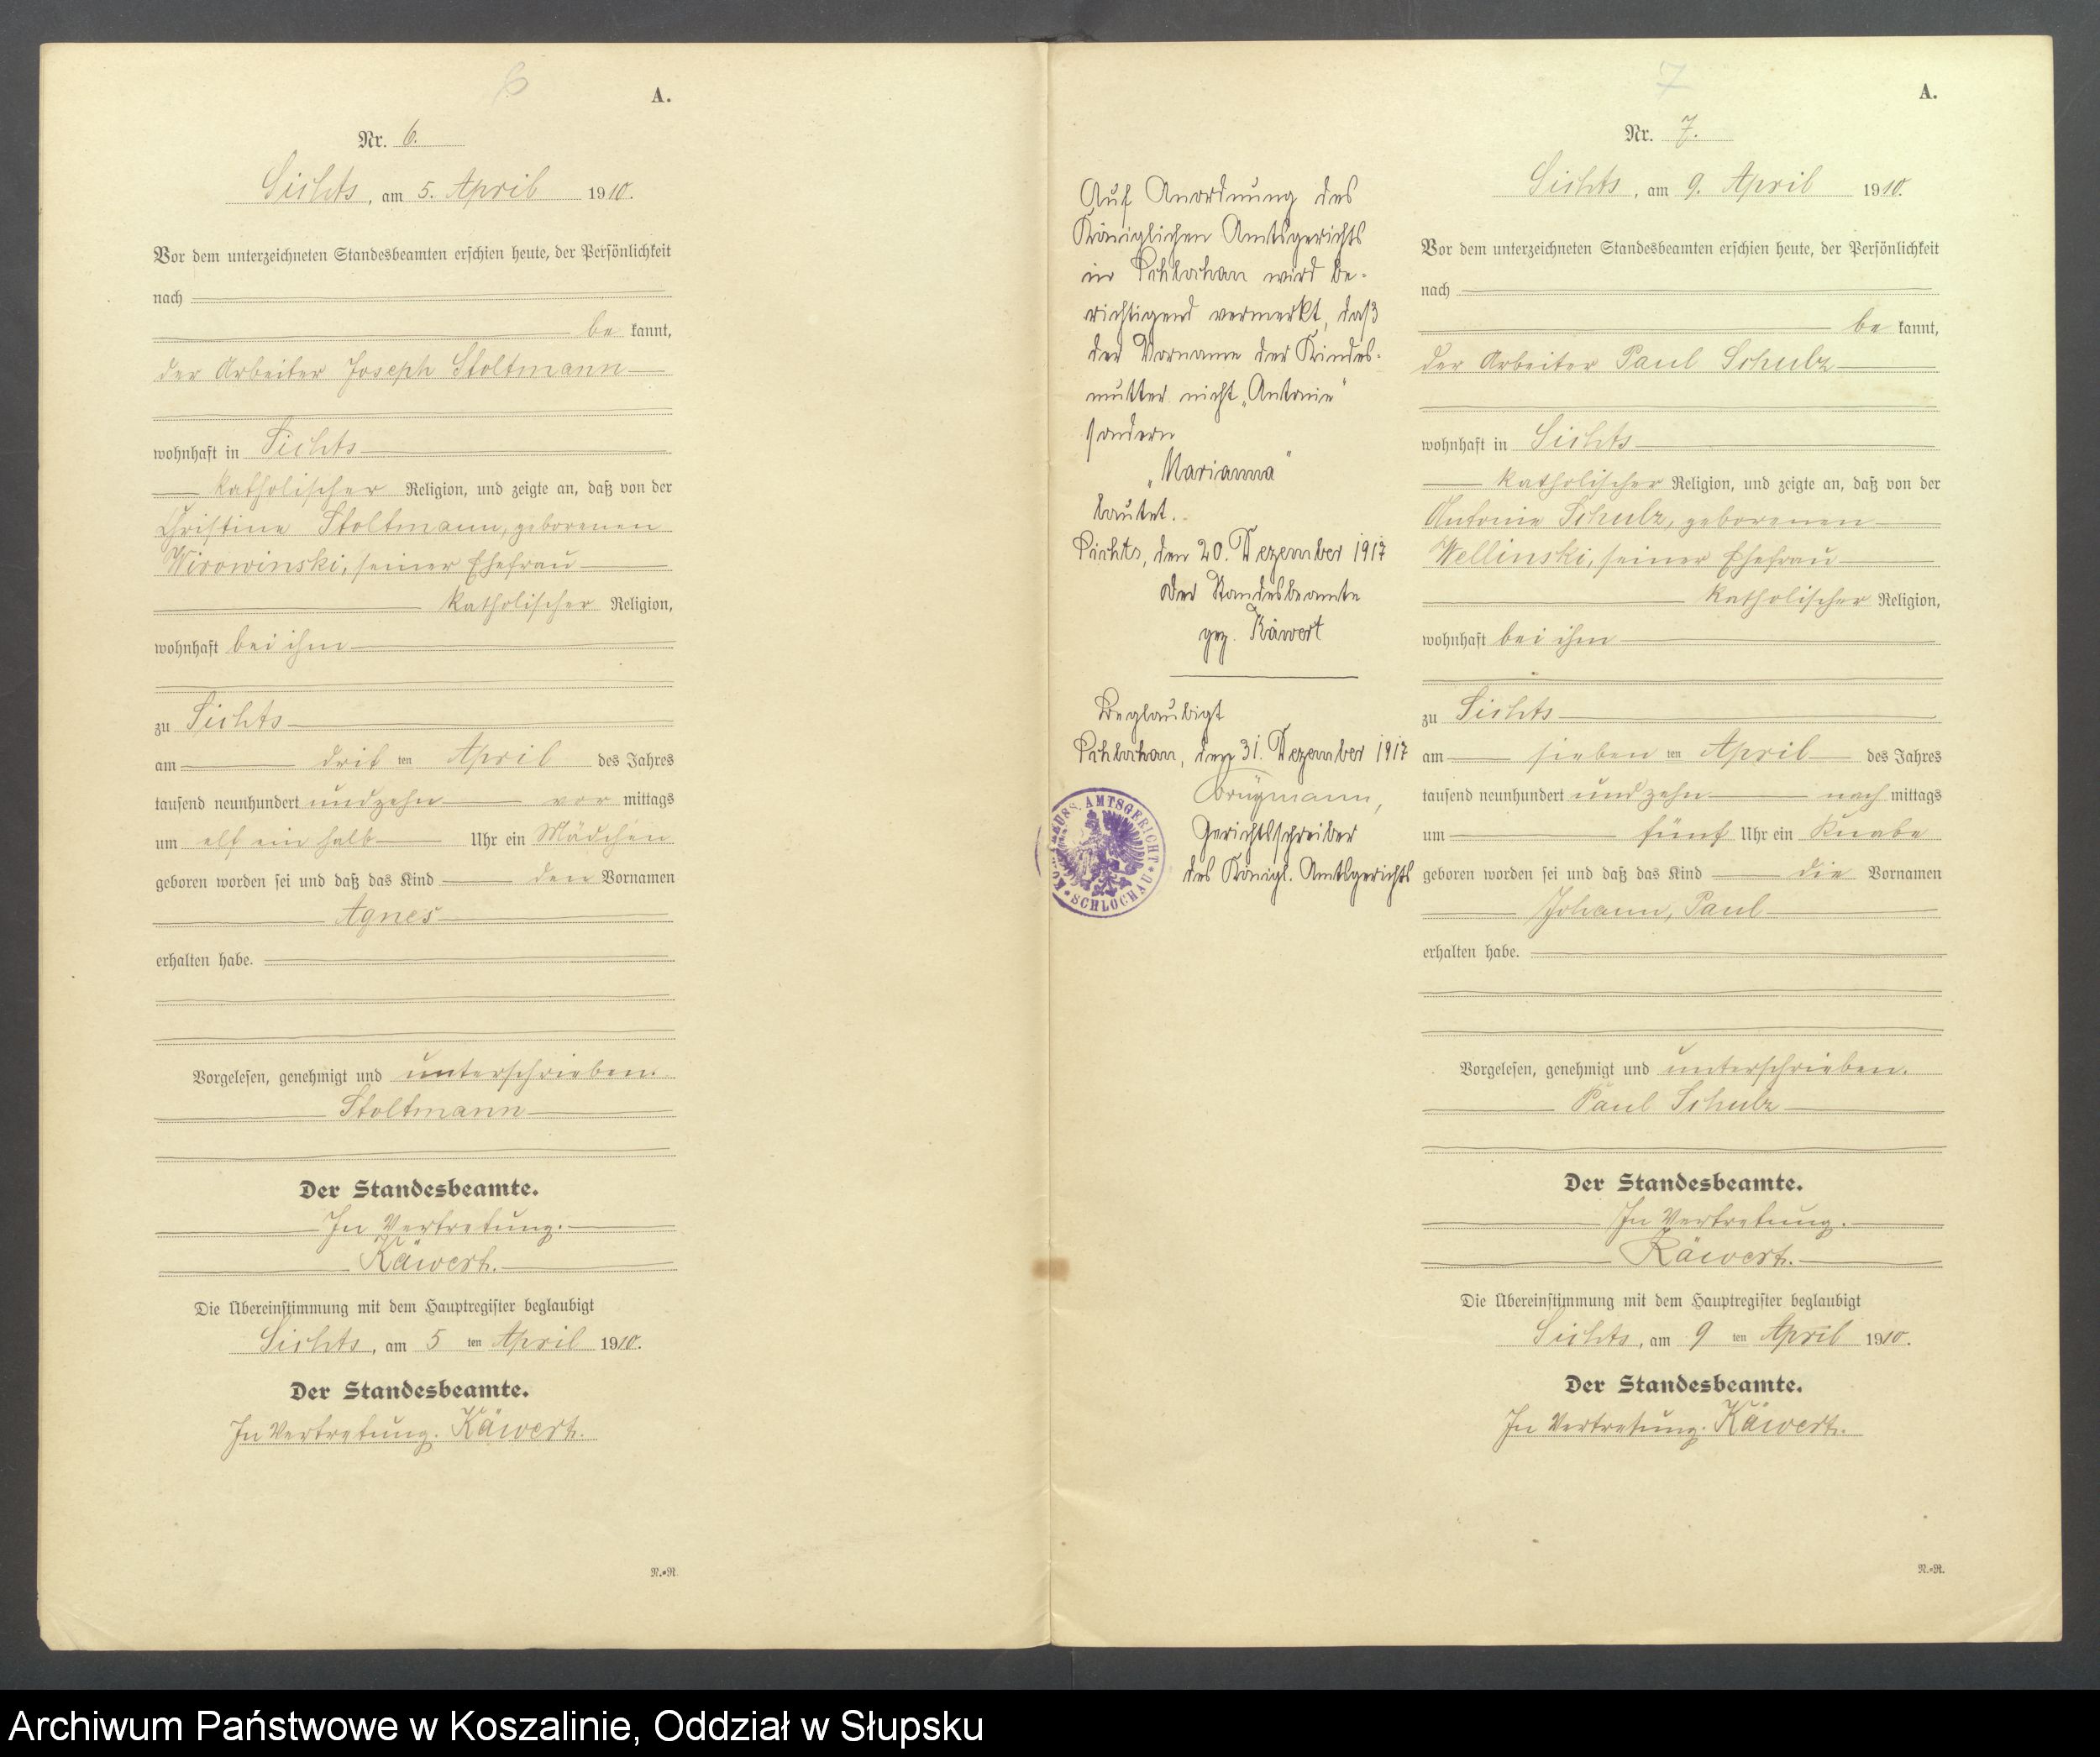 6
A.
Nr. 6.
Sichts, am 5. April 1910.
Vor dem unterzeichneten Standesbeamten erschien heute, der Persönlichkeit
nach
be kannt,
der Arbeiter Joseph Stoltmann
wohnhaft in Sichts
katholischer Religion, und zeigte an, daß von der
Christine Stoltmann, geborenen
Wirowinski, seiner Ehefrau
katholischer Religion,
wohnhaft bei ihm
zu Sichts
am drit ten April des Jahres
tausend neunhundert und zehn vor mittags
um elf ein halb Uhr ein Mädchen
geboren worden sei und daß das Kind den Vornamen
Agnes
erhalten habe.
Vorgelesen, genehmigt und unterschrieben.
Stoltmann
Der Standesbeamte.
In Vertretung.
Käwert.
Die Übereinstimmung mit dem Hauptregister beglaubigt
Sichts, am 5 ten April 1910.
Der Standesbeamte.
In Vertretung. Käwert.
N.-R.
Auf Anordnung des
Königlichen Amtsgerichts
in Schlochau wird be-
richtigend vermerkt, daß
der Vorname der Kindes-
mutter nicht „Antonie"
sondern
„Marianna"
lautet.
Sichts, den 20. Dezember 1917
Der Standesbeamte
gez. Käwert
Beglaubigt
Schlochau, den 31. Dezember 1917
Brügmann,
Gerichtsschreiber
des Königl. Amtsgerichts
PREUSS. AMTSGERICHT SCHLOCHAU
7
A.
Nr. 7.
Sichts, am 9. April 1910.
Vor dem unterzeichneten Standesbeamten erschien heute, der Persönlichkeit
nach
be kannt,
der Arbeiter Paul Schulz
wohnhaft in Sichts
katholischer Religion, und zeigte an, daß von der
Antonie Schulz, geborenen
Wellinski, seiner Ehefrau
katholischer Religion,
wohnhaft bei ihm
zu Sichts
am sieben ten April des Jahres
tausend neunhundert und zehn nach mittags
um fünf Uhr ein Knabe
geboren worden sei und daß das Kind die Vornamen
Johann, Paul
erhalten habe.
Vorgelesen, genehmigt und unterschrieben.
Paul Schulz
Der Standesbeamte.
In Vertretung.
Käwert.
Die Übereinstimmung mit dem Hauptregister beglaubigt
Sichts, am 9 ten April 1910.
Der Standesbeamte.
In Vertretung. Käwert.
N.-R.
Archiwum Państwowe w Koszalinie, Oddział w Słupsku